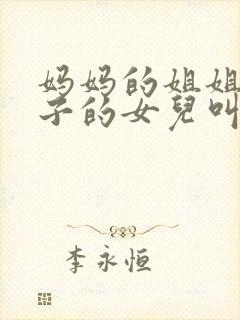 妈妈的姐姐
子的女兒叫
李永恒